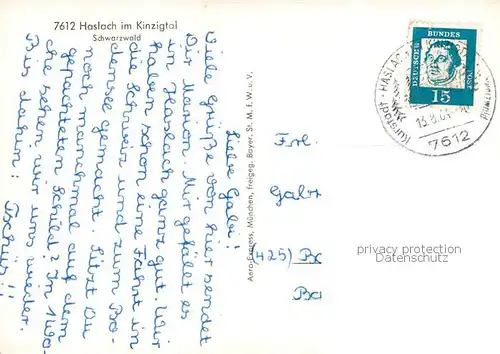 7612 Haslach im Kinzigtal
Schwarzwald
Liebe Gabi!
Viele Grüße von hier sendet
Dir Marion. Mir gefällt es
in Haslach ganz gut. Wir
haben schon eine Fahrt in
die Schweiz und zum Bo-
densee gemacht. Sitzt Du
noch manchmal auf dem
gepachteten Schild? In 1 Wo-
che sehen wir uns wieder.
Bis dahin: Tschüs!!
Aero-Express, München, freigeg. Bayer. St. M. F. W. u. V.
DEUTSCHE BUNDESPOST
15
HASLACH
Kurstadt
7612
Frl.
Gabi
(425) Bo
Ba
privacy protection
Datenschutz